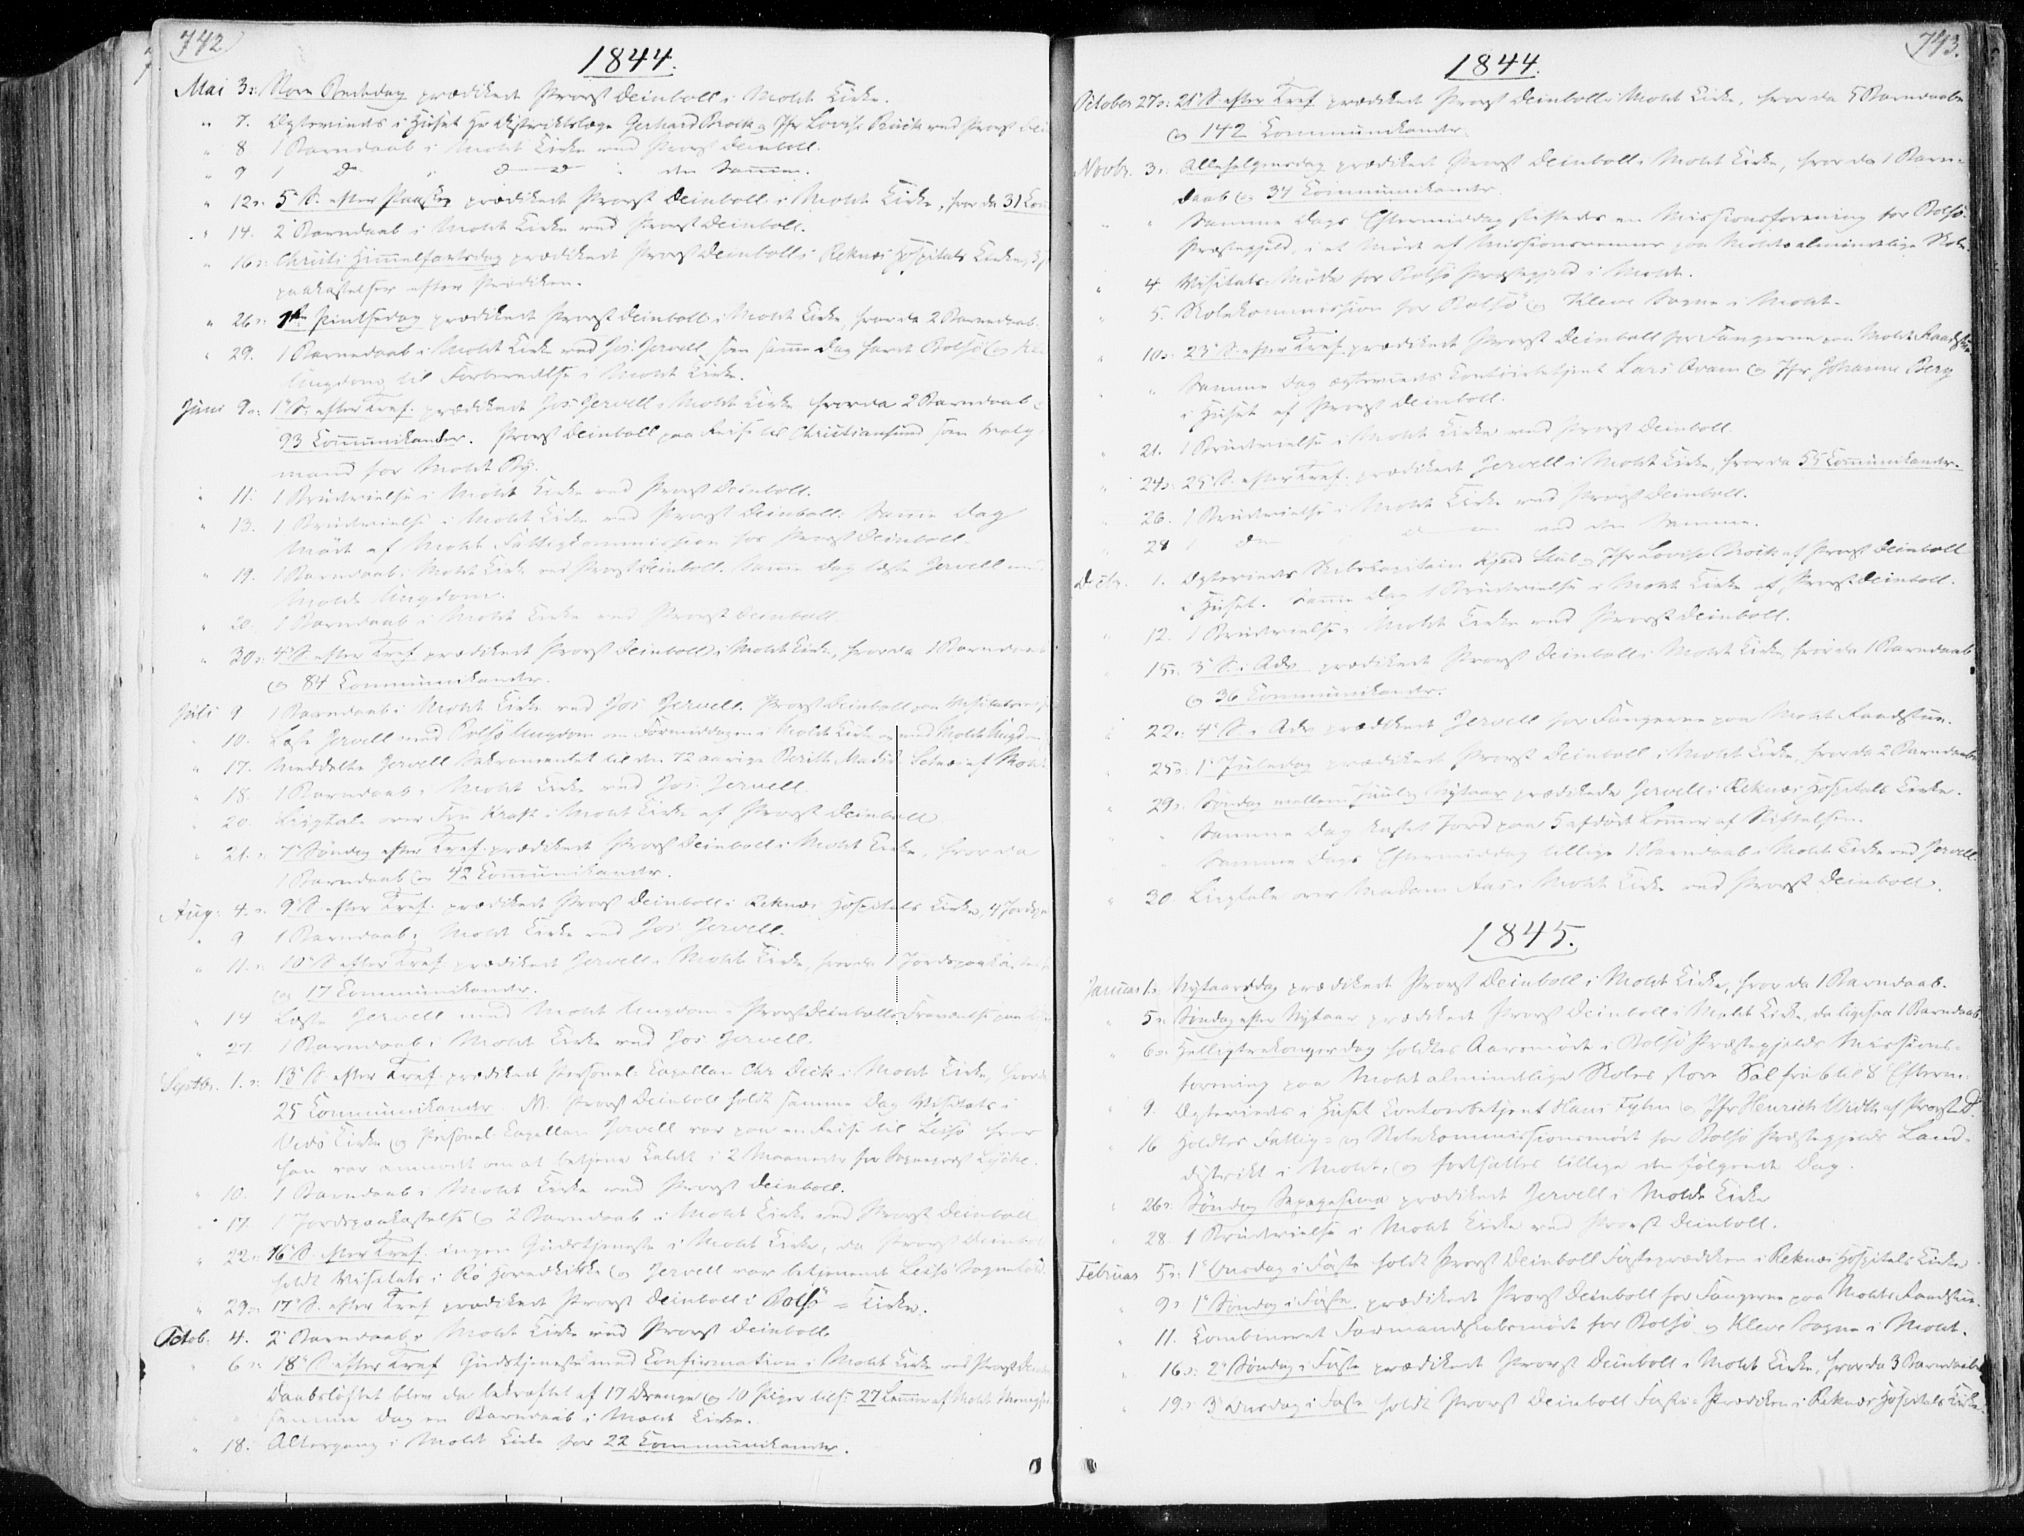 742.
1844.
Mai 3: Store Bededag prædikede Provst Deinboll i Molde Kirke.
" 7. Ægtevieds i Huset Hr Districtslæge Gerhard Brock og Jfr Lovise Brück ved Provst
" 8 1 Barnedaab i Molde Kirke ved Provst Deinboll.
" 9 1 do " do do " den Samme.
" 12: 5 S. efter Paaske prædikede Provst Deinboll i Molde Kirke, hvor da 31
" 14. 2 Barnedaab i Molde Kirke ved Provst Deinboll.
" 16: Christi Himmelfartsdag prædikede Provst Deinboll i Reknæs Hospitals Kirke,
paakastelser efter Prædiken.
" 26: 1ste Pintsedag prædikede Provst Deinboll i Molde Kirke, hvor da 2 Barnedaab.
" 29. 1 Barnedaab i Molde Kirke ved Jos: Jervell, som samme Dag havde Bolsø og
Ungdom til Forberedelse i Molde Kirke.
Juni 9: 1 S. efter Tref. prædikede Jos: Jervell i Molde Kirke hvor da 2 Barnedaab
93 Communikanter. Provst Deinboll paa Reise til Christiansund som Valg-
mand for Molde By.
" 11: 1 Brudevielse i Molde Kirke ved Provst Deinboll.
" 13. 1 Brudevielse i Molde Kirke ved Provst Deinboll. Samme Dag
Møde af Molde Fattigkommission hos Provst Deinboll.
" 19. 1 Barnedaab i Molde Kirke ved Provst Deinboll. Samme Dag læste Jervell med
Molde Ungdom.
" 20. 1 Barnedaab i Molde Kirke ved Provst Deinboll.
" 30: 4 S. efter Tref. prædikede Provst Deinboll i Molde Kirke, hvor da 1 Barnedaab
og 84 Communikanter.
Juli 9 1 Barnedaab i Molde Kirke ved Jos: Jervell. Provst Deinboll paa
" 10. Læste Jervell med Bolsø Ungdom om Formiddagen i Molde Kirke og med Molde Ungdom
" 17. Meddelte Jervell Sakramentet til den 72 aarige Berith af Molde
" 18. 1 Barnedaab i Molde Kirke ved Jos: Jervell.
" 20. Liigtale over Fru Kraft i Molde Kirke af Provst Deinboll
" 21: 7 Søndag efter Tref. prædikede Provst Deinboll i Molde Kirke, hvor da
1 Barnedaab og 42 Communikanter.
Aug: 4: 9 S. efter Tref. prædikede Provst Deinboll i Reknæs Hospitals Kirke, 4
" 9 1 Barnedaab i Molde Kirke ved Jos: Jervell.
" 11: 10 S. efter Tref. prædikede Jervell i Molde Kirke, hvor da 1 Jordspaakastelse
og 17 Communikanter.
" 14 Læste Jervell med Molde Ungdom i Provst Deinbolls Fraværelse paa
" 27. 1 Barnedaab i Molde Kirke ved Jos: Jervell.
Septbr. 1: 13 S. efter Tref. prædikede personel Capellan Chr Deck i Molde Kirke, hvor da
25 Communikanter. N. Provst Deinboll holdt samme Dag Visitats i
Veøs Kirke og personel Capellan Jervell var paa en Reise til Lesjø hvor
han var anmodet om at betjene Kaldet i 2 Maaneder for Sognepræst
" 10. 1 Barnedaab i Molde Kirke ved Provst Deinboll.
" 17. 1 Jordspaakastelse og 2 Barnedaab i Molde Kirke ved Provst Deinboll
" 22: 16 S. efter Tref. ingen Gudstjeneste i Molde Kirke, da Provst Deinboll
holdt Visitats i Rø Hovedkirke og Jervell var betjenende Lesjø Sognekald.
" 29: 17 S. efter Tref. prædikede Provst Deinboll i Bolsø = Kirke.
Octob. 4. 2 Barnedaab i Molde Kirke ved Provst Deinboll.
" 6: 18 S. efter Tref. Gudstjeneste med Confirmation i Molde Kirke ved Provst
Daabsløftet blev da bekræftet af 17 Drenge og 10 Piger tils: 27 Lemmer af Molde
samme Dag en Barnedaab i Molde Kirke.
" 18. Altergang i Molde Kirke for 22 Communikanter.
743.
1844.
October 27: 21 S. efter Tref. prædikede Provst Deinboll i Molde Kirke, hvor da 5 Barnedaabe
og 142 Communikanter.
Novbr. 3: Allehelgensdag prædikede Provst Deinboll i Molde Kirke, hvor da 1 Barne-
daab og 34 Communikanter.
" " Samme Dags Eftermiddag stiftedes en Missionsforening for Bolsø
Præstegjeld, i et Møde af Missionsvenner paa Molde almindelige Skole.
" 4. Visitats-Møde for Bolsø Præstegjeld i Molde.
" 5. Skolekommission for Bolsø og Kleve Sogne i Molde.
" 10: 23 S. efter Tref. prædikede Provst Deinboll for Fangerne paa Molde Raadstue
" " Samme Dag ægtevieds Contoirbetjent Lars Qvam og Jfr Johanne Berg
i Huset af Provst Deinboll.
" 21. 1 Brudevielse i Molde Kirke ved Provst Deinboll
" 24: 25 S. efter Tref. prædikede Jervell i Molde Kirke, hvor da 55 Communikanter.
" 26. 1 Brudevielse i Molde Kirke ved Provst Deinboll.
" 28 1 do do ved den Samme.
Decbr. 1. Ægtevieds Skibscapitain og Jfr Lovise Brock af Provst Deinboll
i Huset. Samme Dag 1 Brudevielse i Molde Kirke af Provst Deinboll.
" 12. 1 Brudevielse i Molde Kirke ved Provst Deinboll.
" 15: 3 S. i Adv prædikede Provst Deinboll i Molde Kirke, hvor da 1 Barnedaab
og 36 Communikanter.
" 22: 4 S. i Adv prædikede Jervell for Fangerne paa Molde Raadstue.
" 25: 1 Juledag prædikede Provst Deinboll i Molde Kirke, hvor da 2 Barnedaabe
" 29: Søndag mellem Juul og Nytaar prædikede Jervell i Reknæs Hospitals Kirke.
" " Samme Dag kastet Jord paa 5 afdøde Lemmer af Stiftelsen.
" Samme Dags Eftermiddag tillige 1 Barnedaab i Molde Kirke ved Jervell.
" 30. Liigtale over Madam Aas i Molde Kirke ved Provst Deinboll.
1845.
Januar 1: Nytaarsdag prædikede Provst Deinboll i Molde Kirke, hvor da 1 Barnedaab.
" 5: Søndag efter Nytaar prædikede Provst Deinboll i Molde Kirke, da ligesaa 1 Barnedaab
" 6: Helligtrekongersdag holdtes Aarsmøde i Bolsø Præstegjelds Missions-
forening paa Molde almindelige Skoles store Sal fra 6 til 8 Efterm.
" 9. Ægtevieds i Huset Contoirbetjent Hans og Jfr af Provst D.
" 16 Holdtes Fattig- og Skolekommissionsmøde for Bolsø Præstegjelds Land-
distrikt i Molde, og fortsattes tillige den følgende Dag.
" 26: Søndag Sexagesima prædikede Jervell i Molde Kirke
" 28. 1 Brudevielse i Molde Kirke ved Provst Deinboll.
Februar 5: 1 Onsdag i Faste holdt Provst Deinboll Fasteprædiken i Reknæs Hospitals Kirke
" 9: 1 Søndag i Faste prædikede Provst Deinboll for Fangerne paa Molde Raadstue.
" 11. Combineret Formandskabsmøde for Bolsø og Kleve Sogne i Molde.
" 16: 2 Søndag i Faste prædikede Provst Deinboll i Molde Kirke, hvor da 3 Barnedaabe
" 19: 3 Onsdag i Faste holdt Provst Deinboll Faste-Prædiken i Reknæs Hospitals Kirke.